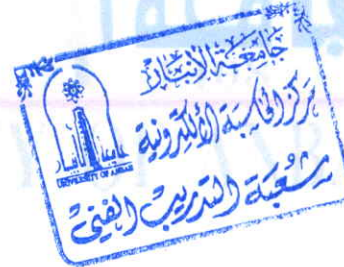 جامعة الأنبار
مركز الحاسبة الألكترونية
شعبة التدريب الفني
جامعة الأنبار
UNIVERSITY OF ANBAR